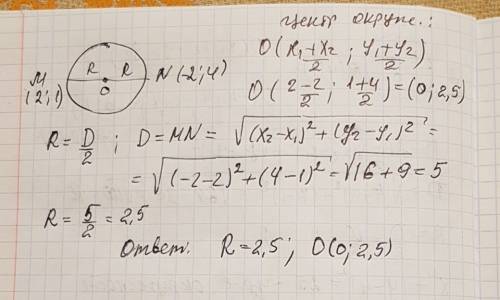 центр окруж.:
O(x₁+x₂/2 ; y₁+y₂/2)
R R
M
(2;1)
N(-2;4)
O
O(2-2/2 ; 1+4/2)=(0;2,5)
R=D/2 ; D=MN=√(x₂-x₁)²+(y₂-y₁)²=
=√(-2-2)²+(4-1)²=√16+9=5
R=5/2=2,5
Ответ. R=2,5; O(0;2,5)